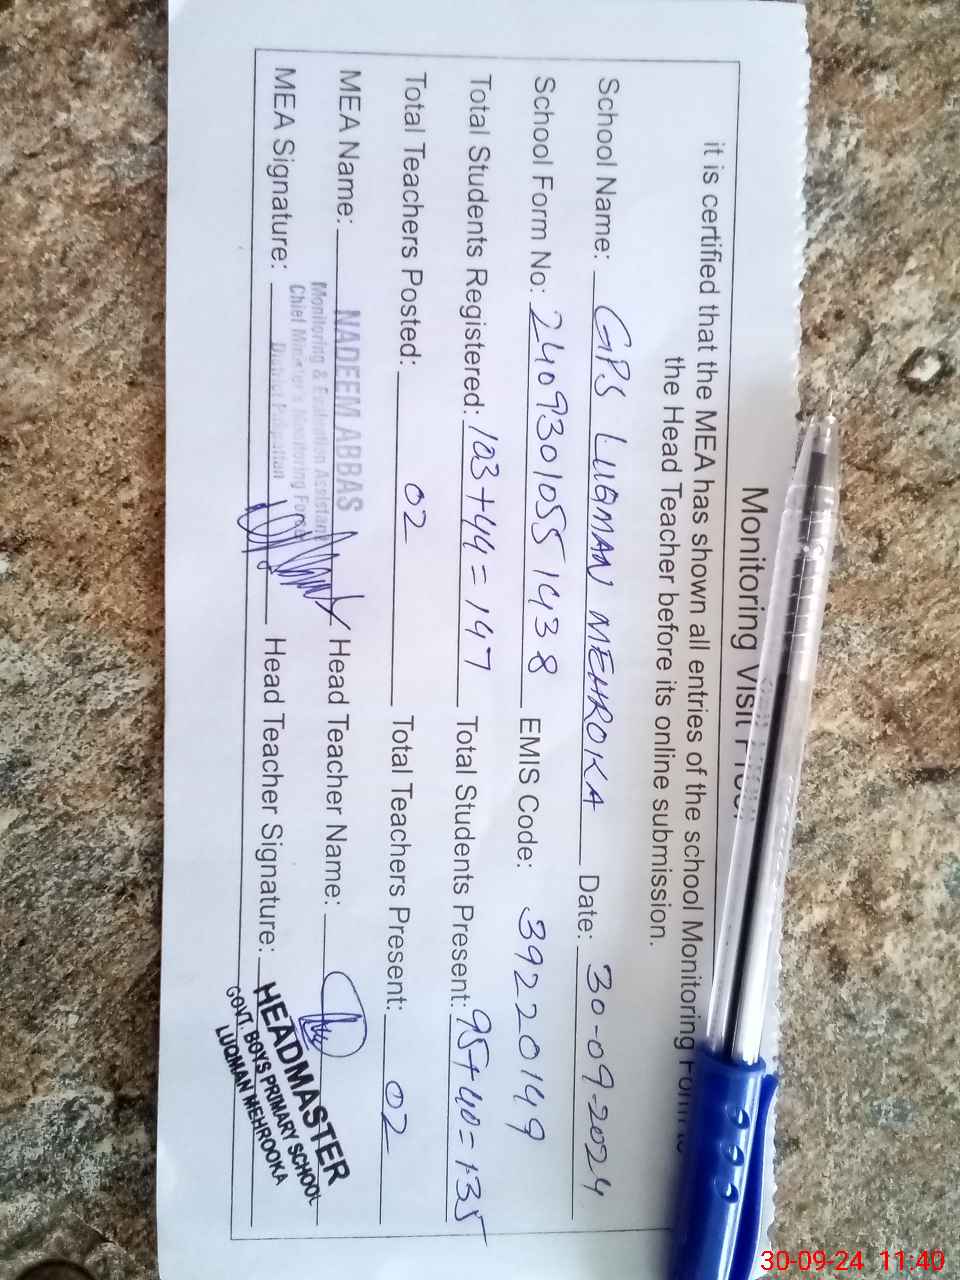 Monitoring Visit Proof
it is certified that the MEA has shown all entries of the school Monitoring Form to
the Head Teacher before its online submission.
School Name: GPS LUQMAN MEHROKA Date: 30-09-2024
School Form No: 24093010551438 EMIS Code: 39220149
Total Students Registered: 103+44=147 Total Students Present: 95+40=135
Total Teachers Posted: 02 Total Teachers Present: 02
MEA Name: NADEEM ABBAS Head Teacher Name:
Monitoring & Evaluation Assistant
Chief Minister's Monitoring Force
District Pakpattan
MEA Signature: Head Teacher Signature:
HEADMASTER
GOVT. BOYS PRIMARY SCHOOL
LUQMAN MEHROOKA
30-09-24 11:40